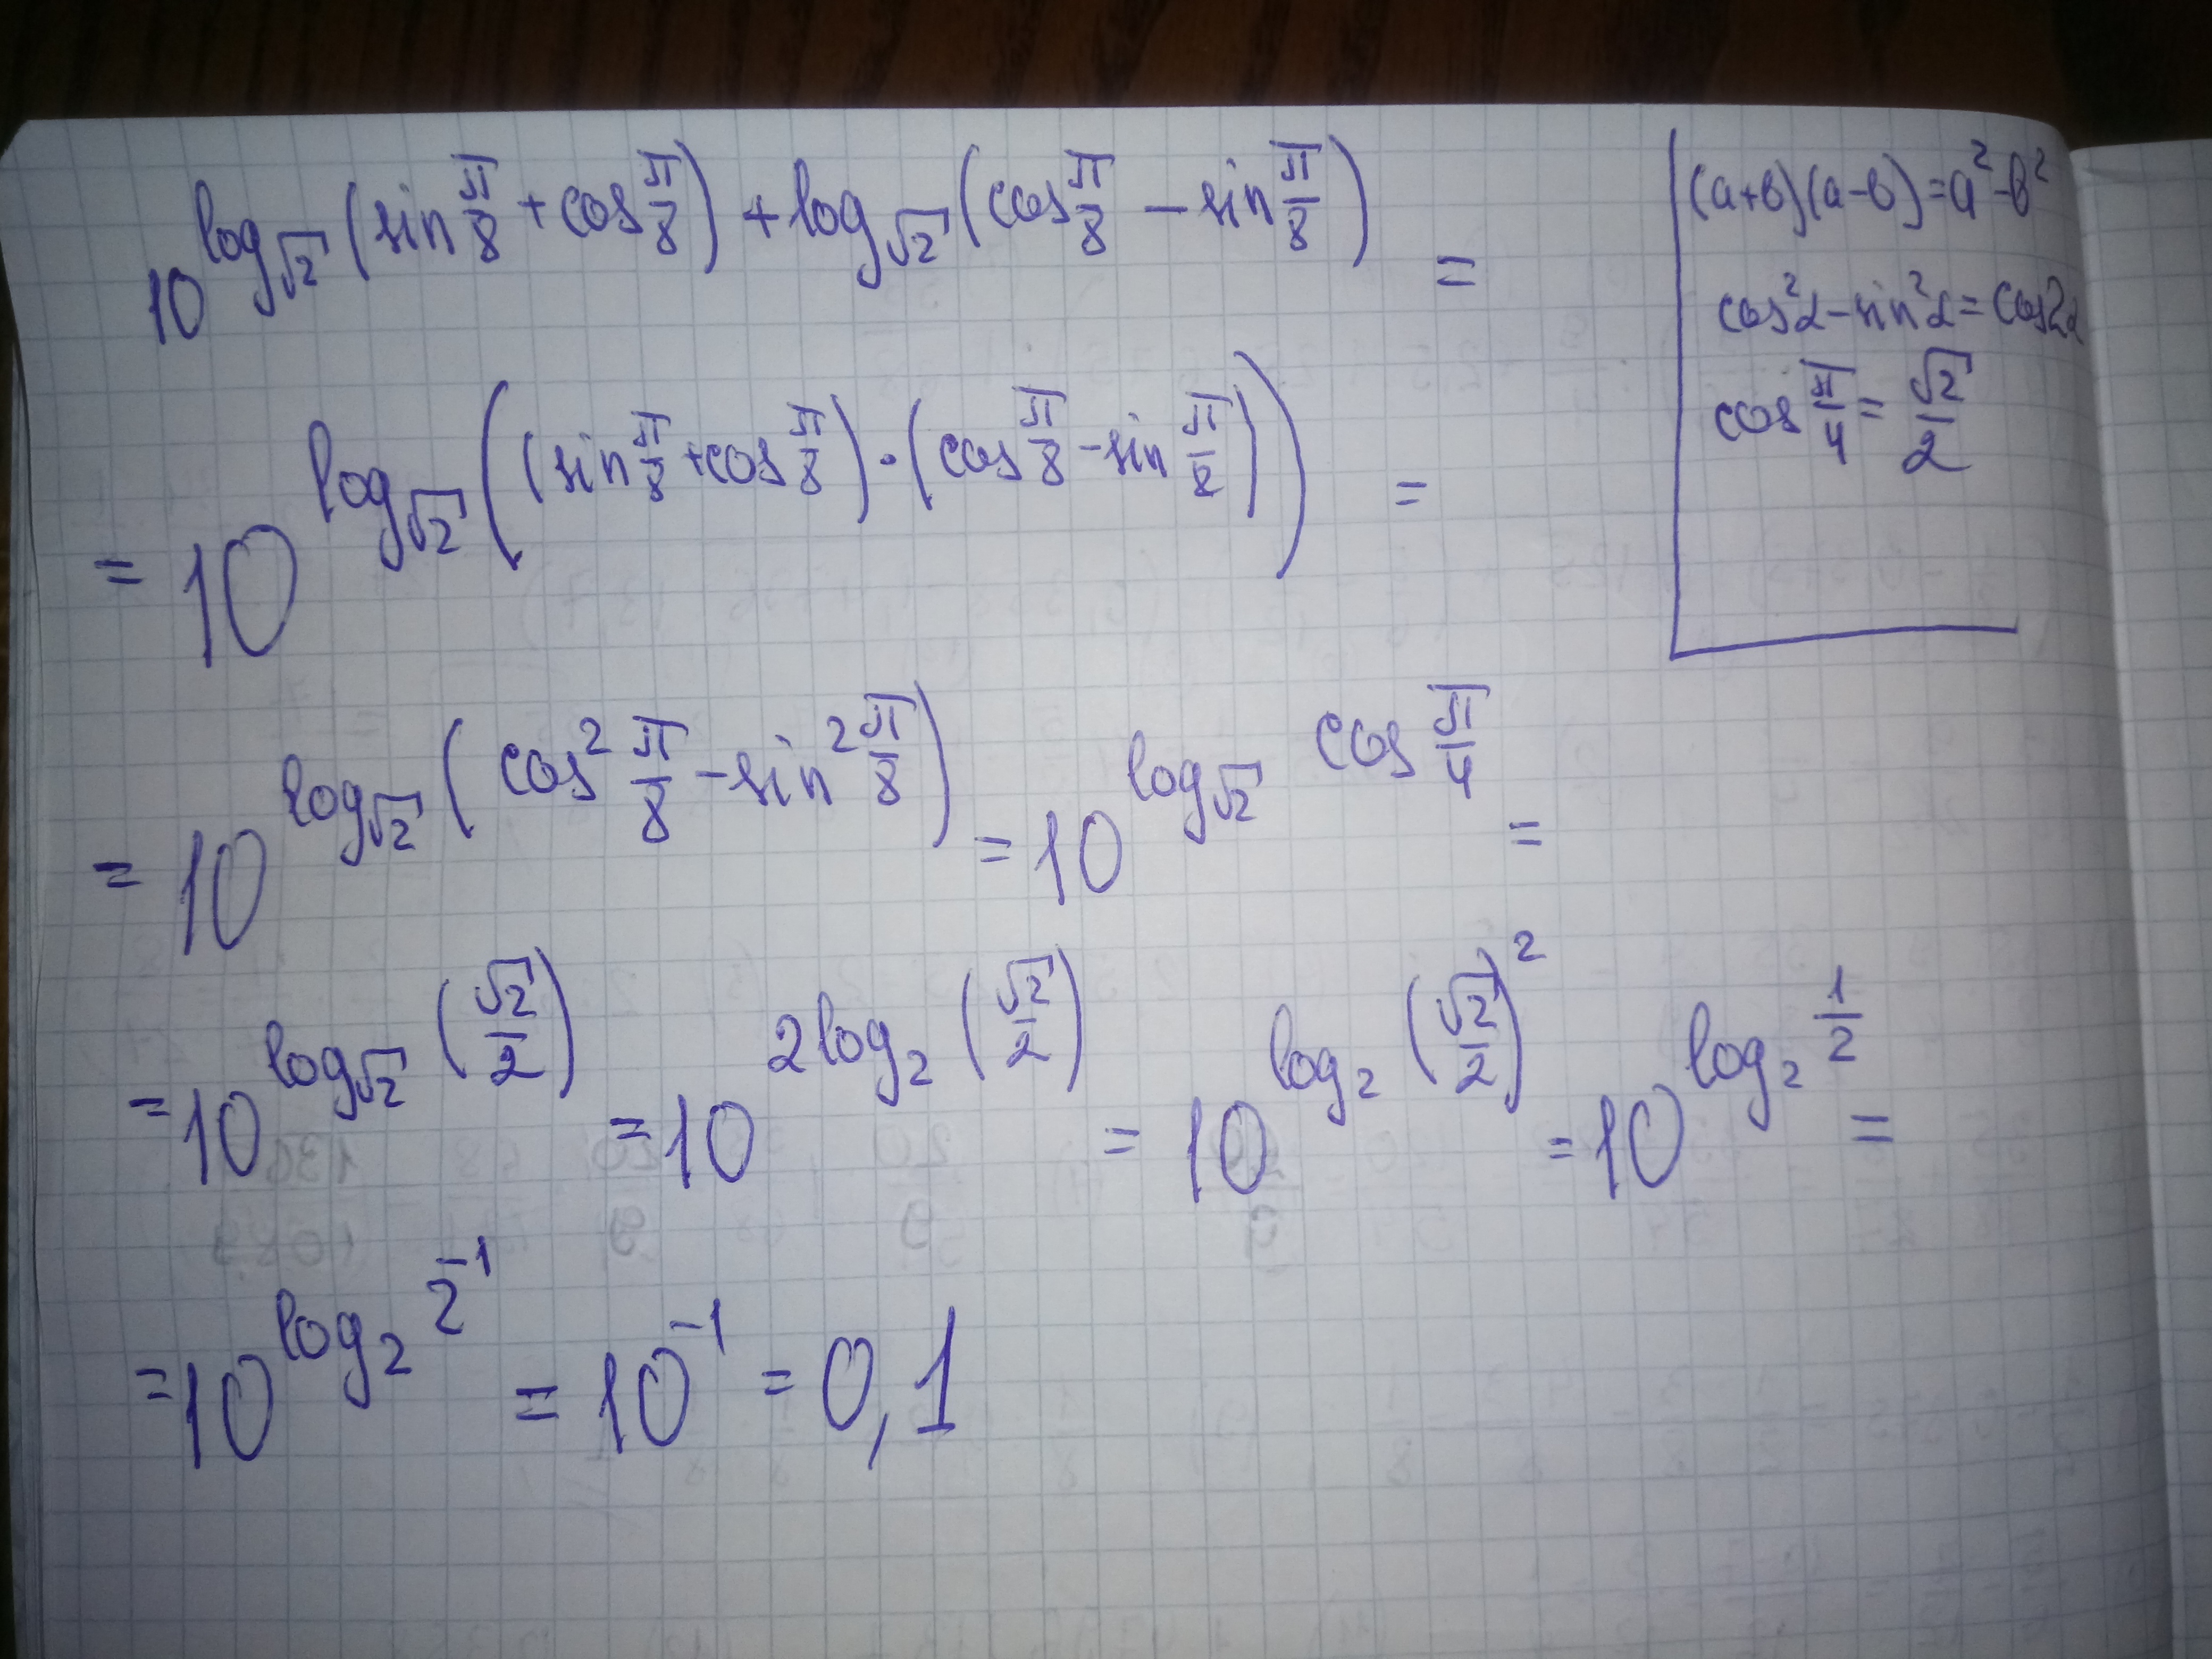 10^(log_√2 (sin π/8 + cos π/8) + log_√2 (cos π/8 − sin π/8)) =
(a+b)(a−b) = a² − b²
cos²α − sin²α = cos2α
cos π/4 = √2/2
= 10^(log_√2 ((sin π/8 + cos π/8) · (cos π/8 − sin π/8))) =
= 10^(log_√2 (cos² π/8 − sin² π/8)) = 10^(log_√2 cos π/4) =
= 10^(log_√2 (√2/2)) = 10^(2log₂ (√2/2)) = 10^(log₂ (√2/2)²) = 10^(log₂ 1/2) =
= 10^(log₂ 2⁻¹) = 10⁻¹ = 0,1